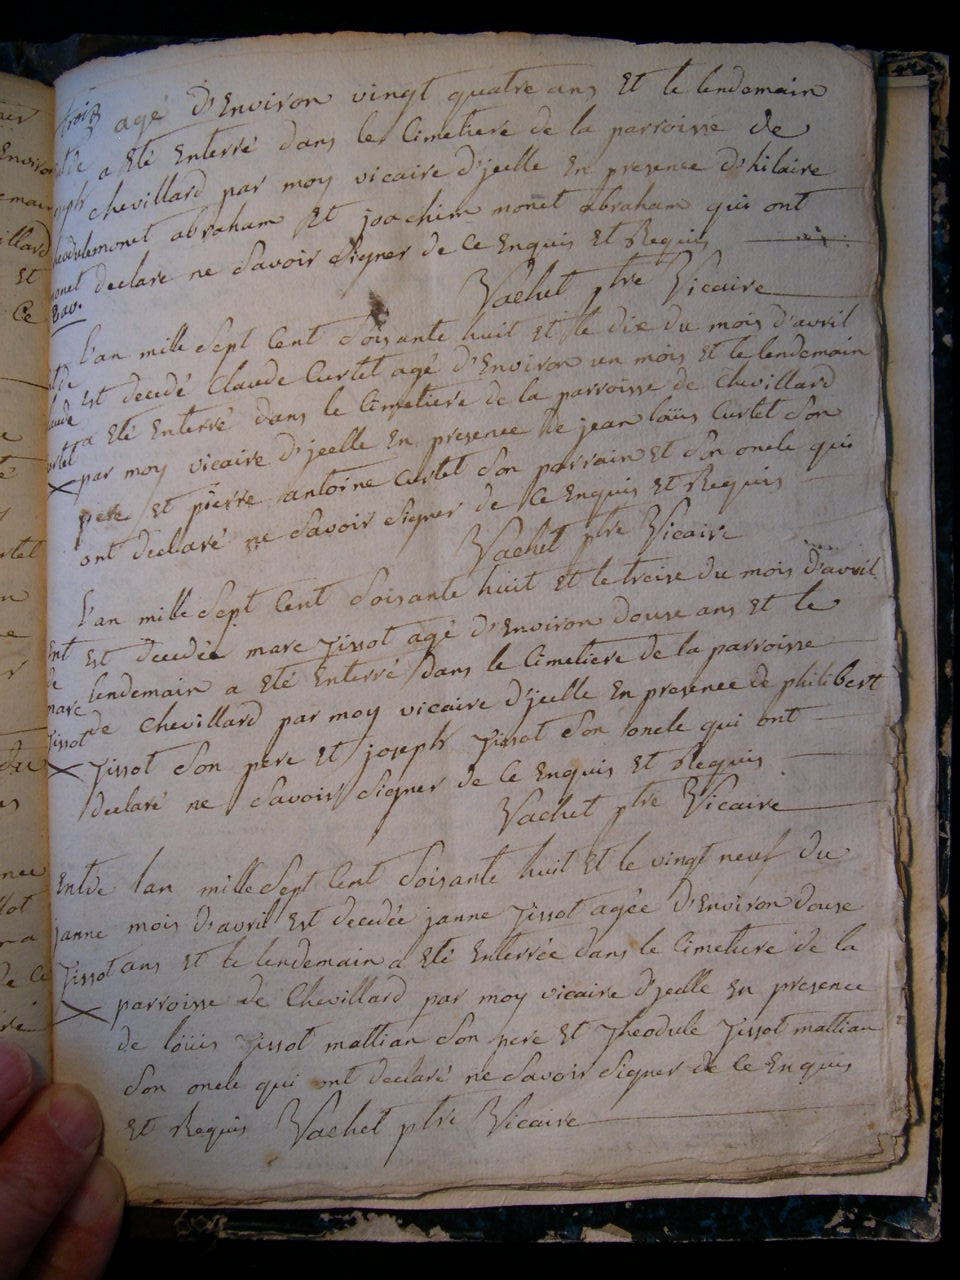 agé d'Environ vingt quatre ans Et le lendemain
a Eté Enterré dans le Cimetiere de la parroisse de
chevillard par moy vicaire d'jcelle En presence d'hilaire
monet abraham Et joachim monet abraham qui ont
declare ne Savoir Signer de Ce Enquis Et Requis
Vachet ptre Vicaire
l'an mille Sept Cent Soisante huit Et le dix du mois d'avril
Est decedé Claude Curtet agé d'Environ un mois Et le lendemain
a Eté Enterré dans le Cimetiere de la parroisse de Chevillard
par moy vicaire d'jcelle En presence de jean loüis Curtet Son
pere Et pierre antoine Curtet Son parrain Et Son oncle qui
ont declaré ne Savoir Signer de Ce Enquis Et Requis
Vachet ptre Vicaire
l'an mille Sept Cent Soisante huit Et le treise du mois d'avril
Est decedée marc Tissot agé d'Environ douse ans Et le
lendemain a Eté Enterré dans le Cimetiere de la parroisse
marc
de Chevillard par moy vicaire d'jcelle En presence de philibert
Tissot
Tissot Son pere Et joseph Tissot Son oncle qui ont
declaré ne Savoir Signer de Ce Enquis Et Requis
Vachet ptre Vicaire
Entde lan mille Sept Cent Soisante huit Et le vingt neuf du
janne mois d'avril Est decedée janne Tissot agée d'Environ douse
Tissot ans Et le lendemain a Eté Enterrée dans le Cimetiere de la
parroisse de Chevillard par moy vicaire d'jcelle En presence
de loüis Tissot mattian Son pere Et Theodule Tissot mattian
Son oncle qui ont declaré ne Savoir Signer de Ce Enquis
Et Requis Vachet ptre Vicaire